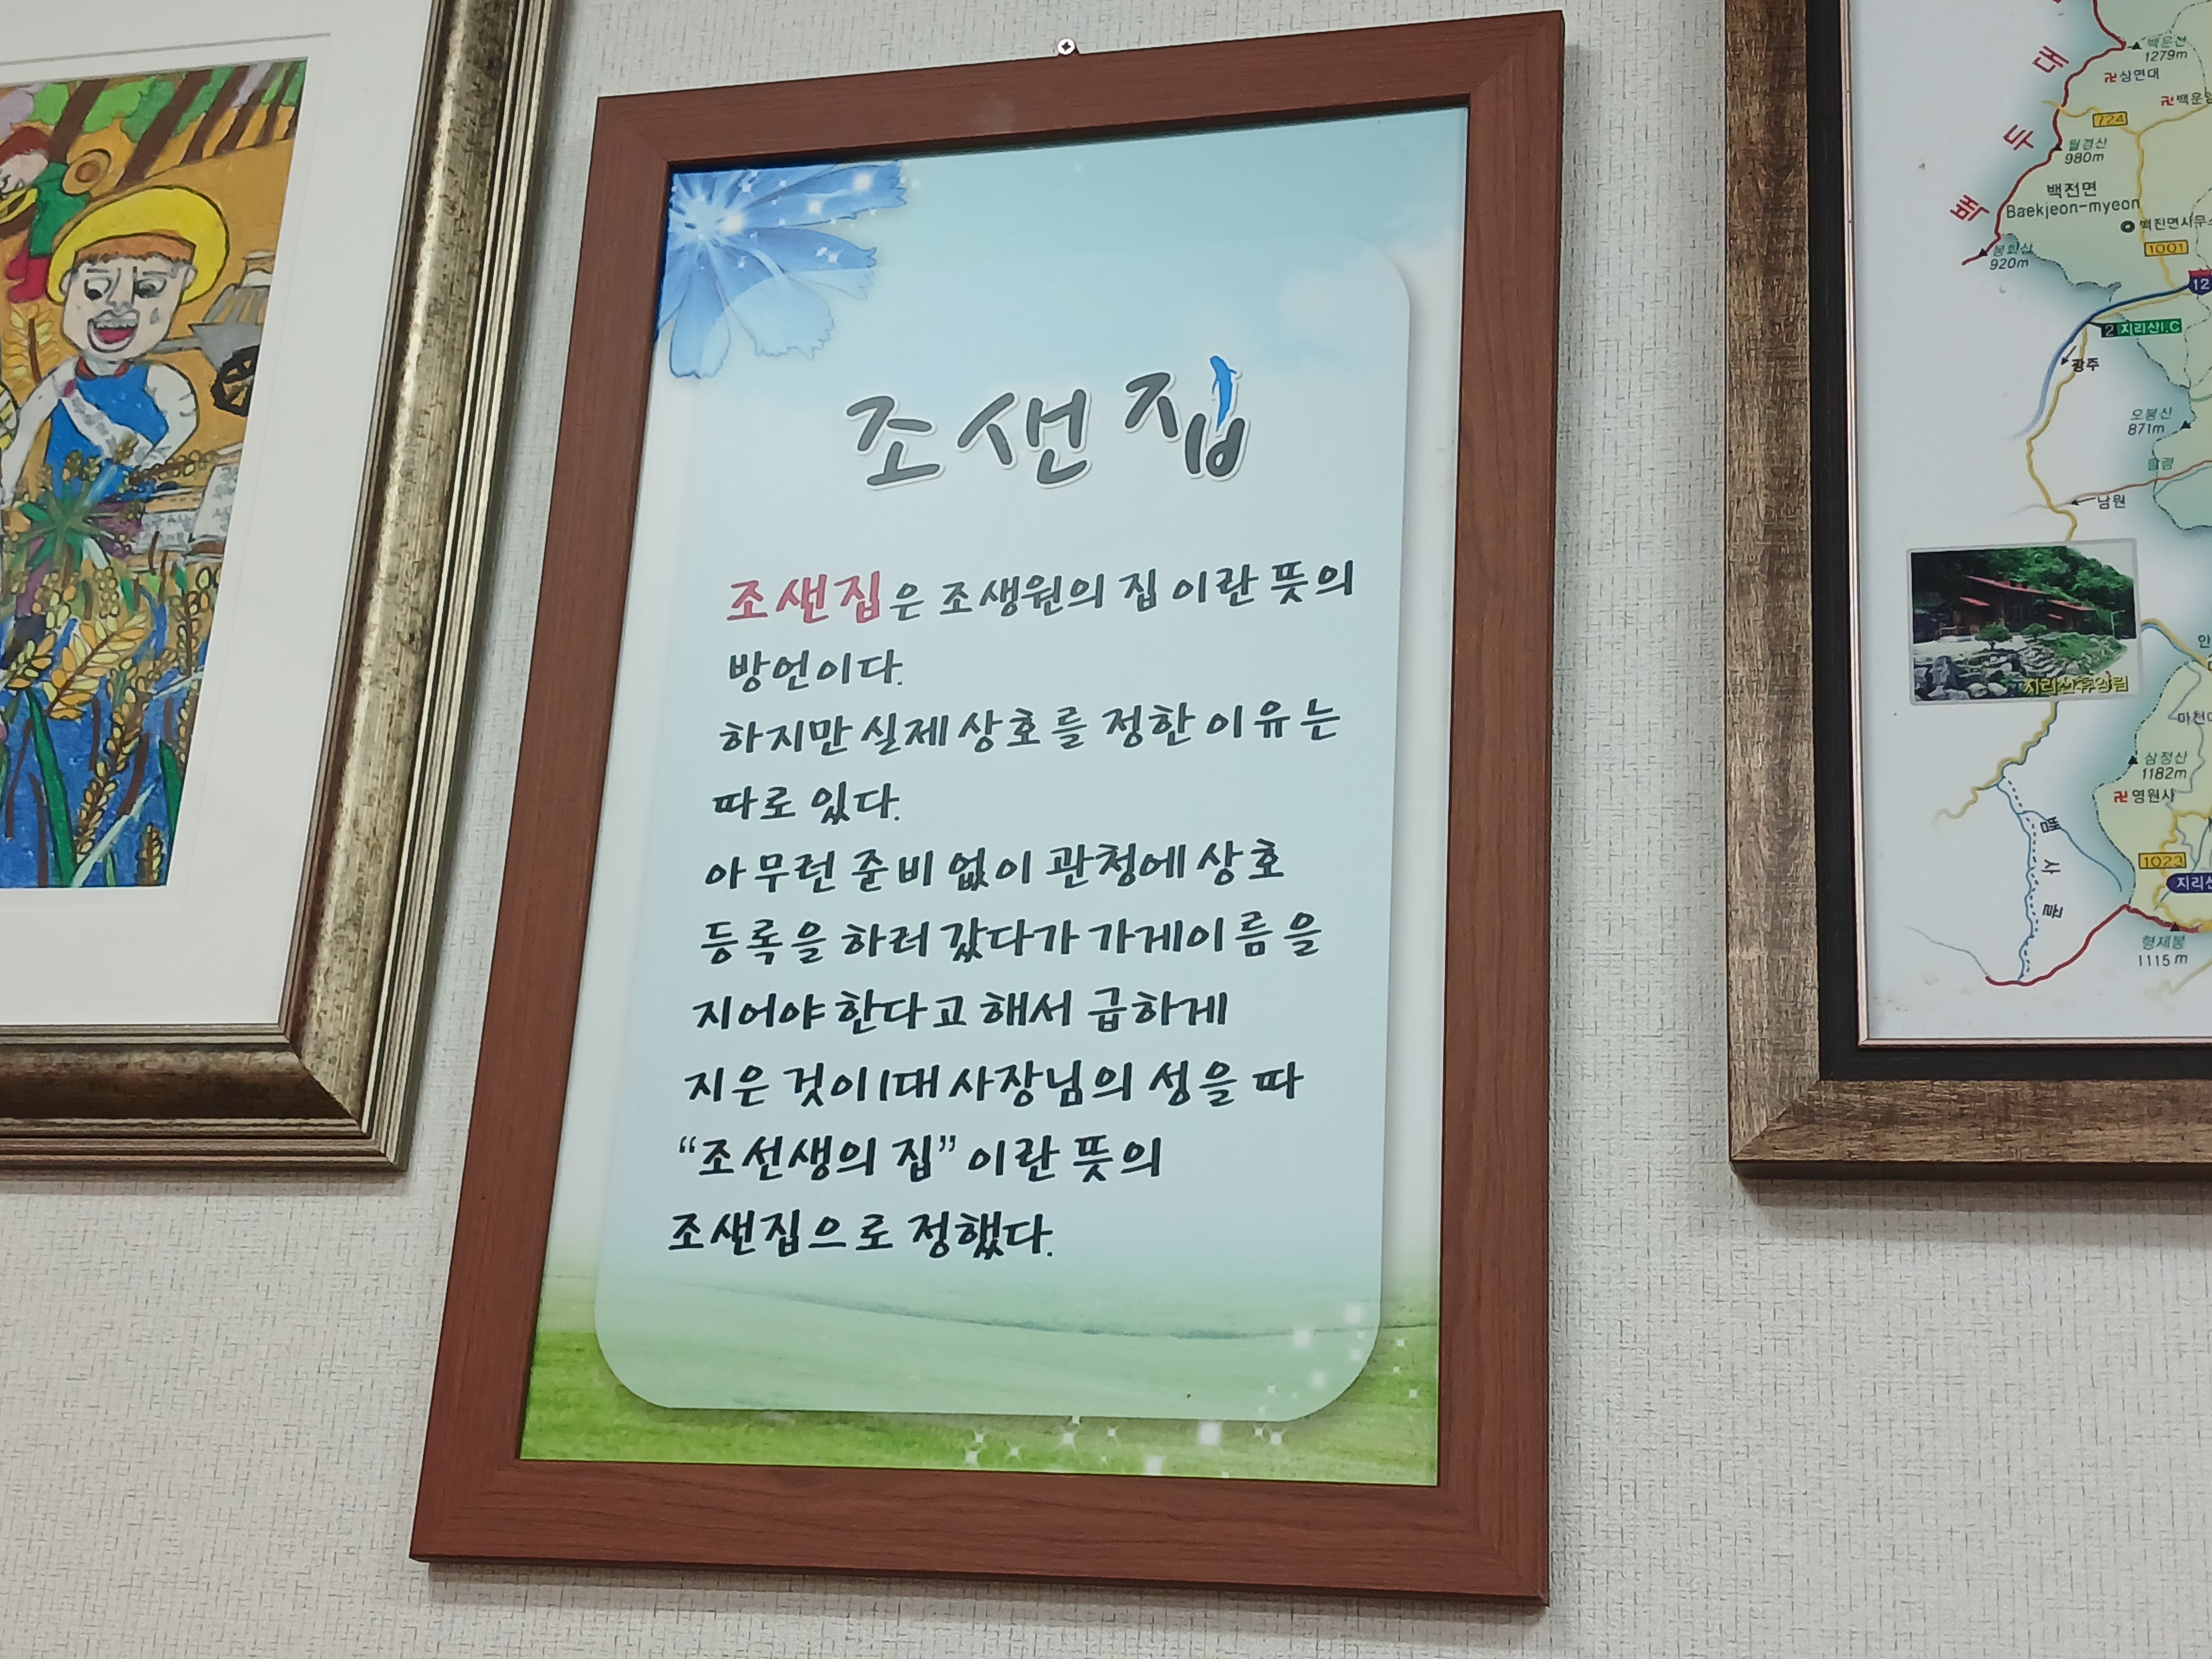 조샌집
조샌집은 조생원의 집 이란 뜻의
방언이다.
하지만 실제 상호를 정한 이유는
따로 있다.
아무런 준비 없이 관청에 상호
등록을 하러 갔다가 가게이름을
지어야 한다고 해서 급하게
지은 것이 1대 사장님의 성을 따
“조선생의 집” 이란 뜻의
조샌집으로 정했다.
백두대
백운산
1279m
상연대
백운암
724
월경산
980m
백전면
Baekjeon-myeon
백전면사무소
1001
봉화산
920m
12
2 지리산I.C
광주
오봉산
871m
남원
지리산휴양림
삼정산
1182m
영원사
뱀사골
1023
형제봉
1115m